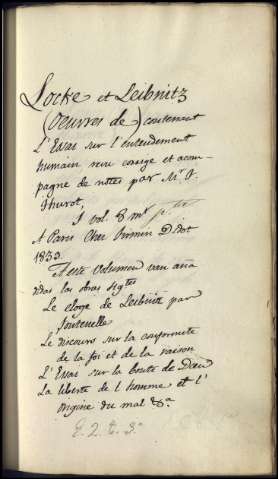 Locke et Leibnitz
(Oeuvres de) contenant
L'Essai sur l'entendement
humain revu corrigé et accom-
pagne de notes par Mr. F.
Thurot,
1 vol. 8 mr
A Paris Chez Firmin Didot
1839.
A este volumen van aña
didas las obras sigtes
Le eloge de Leibnitz par
fontenelle
Le discours sur la conformite
de la foi et de la raison
L'Essai sur la bonte de Dieu
La liberte de l'homme et l'
origine du mal &a
E. 2. t. 3o